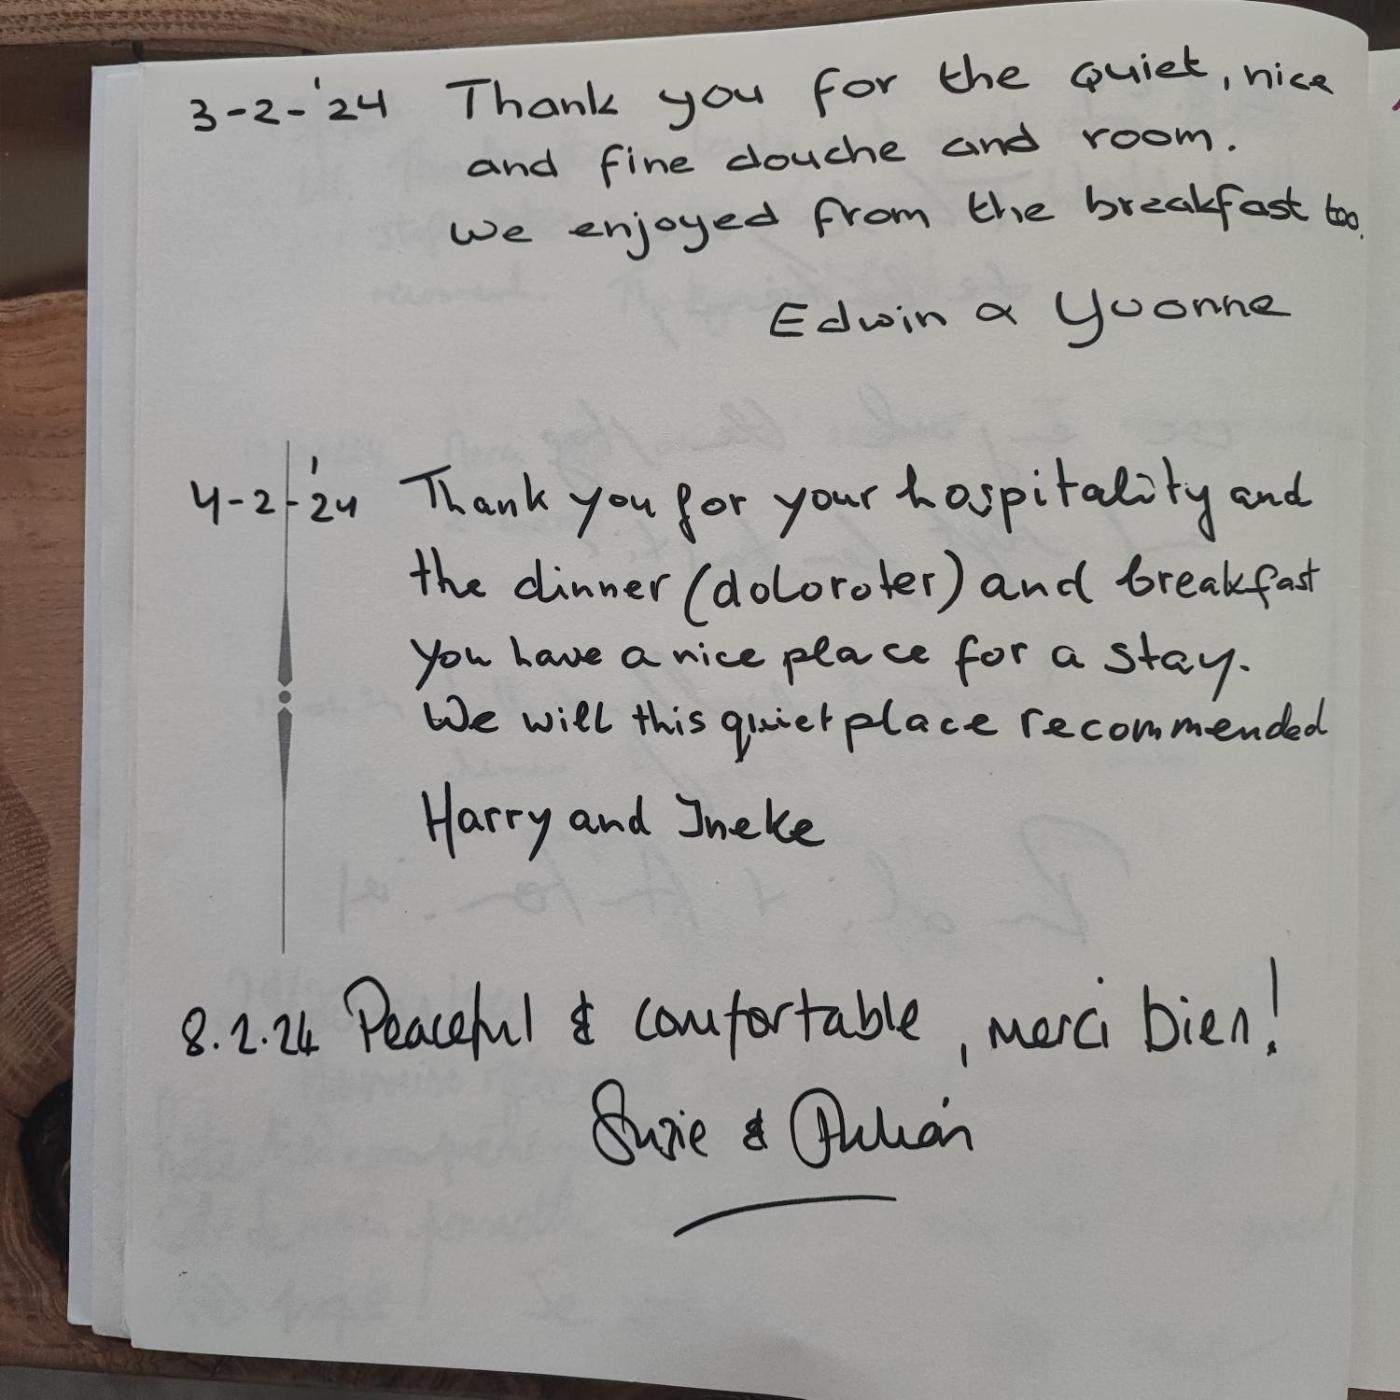 3-2-'24 Thank you for the quiet, nice
and fine douche and room.
we enjoyed from the breakfast too.
Edwin & Yvonne
4-2-'24 Thank you for your hospitality and
the dinner (doloroter) and breakfast
you have a nice place for a stay.
We will this quiet place recommended
Harry and Ineke
8.2.24 Peaceful & comfortable, merci bien!
Suzie &